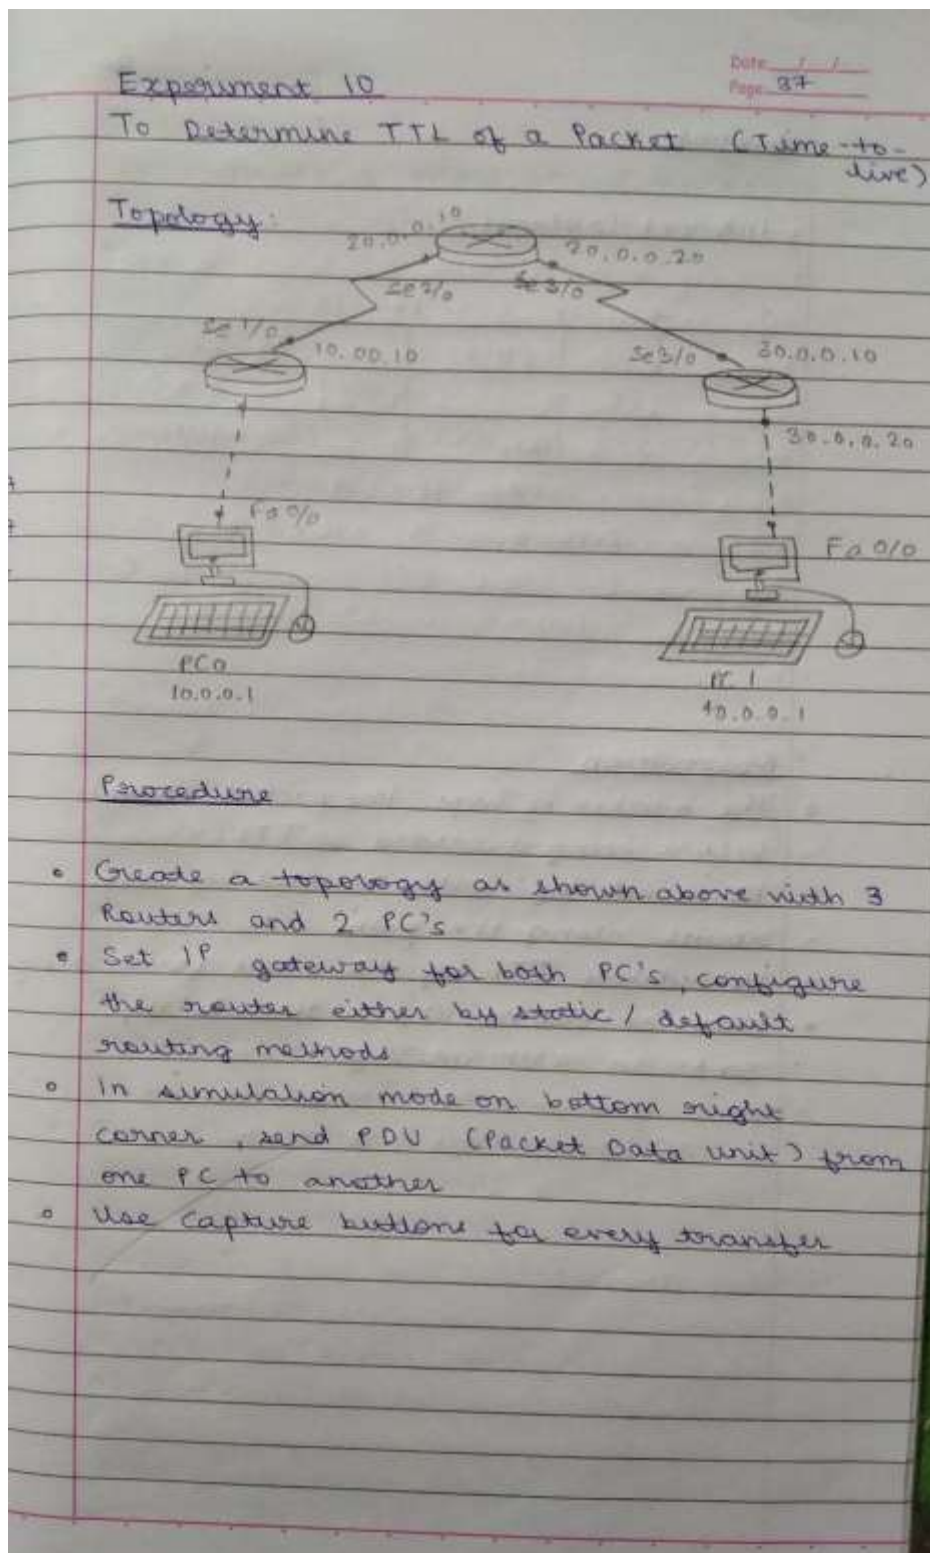 Date / /
Page 37
Experiment 10
To Determine TTL of a Packet (Time-to-
live)
Topology:
20.0.0.10
20.0.0.20
Se2/0
Se3/0
Se1/0
10.00.10
Se3/0
30.0.0.10
30.0.0.20
Fa0/0
Fa0/0
PC0
10.0.0.1
PC1
40.0.0.1
Procedure
Create a topology as shown above with 3
Routers and 2 PC's
Set IP gateway for both PC's, configure
the router either by static / default
routing methods
In simulation mode on bottom right
corner, send PDU (Packet Data unit) from
one PC to another
Use capture buttons for every transfer